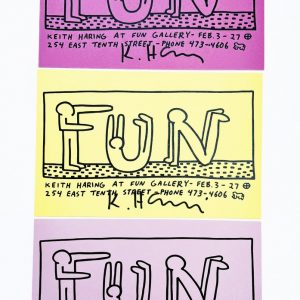 FUN
KEITH HARING AT FUN GALLERY - FEB. 3 - 27
254 EAST TENTH STREET - PHONE 473-4606
K. Haring
FUN
KEITH HARING AT FUN GALLERY - FEB. 3 - 27
254 EAST TENTH STREET - PHONE 473-4606
K. Haring
FUN